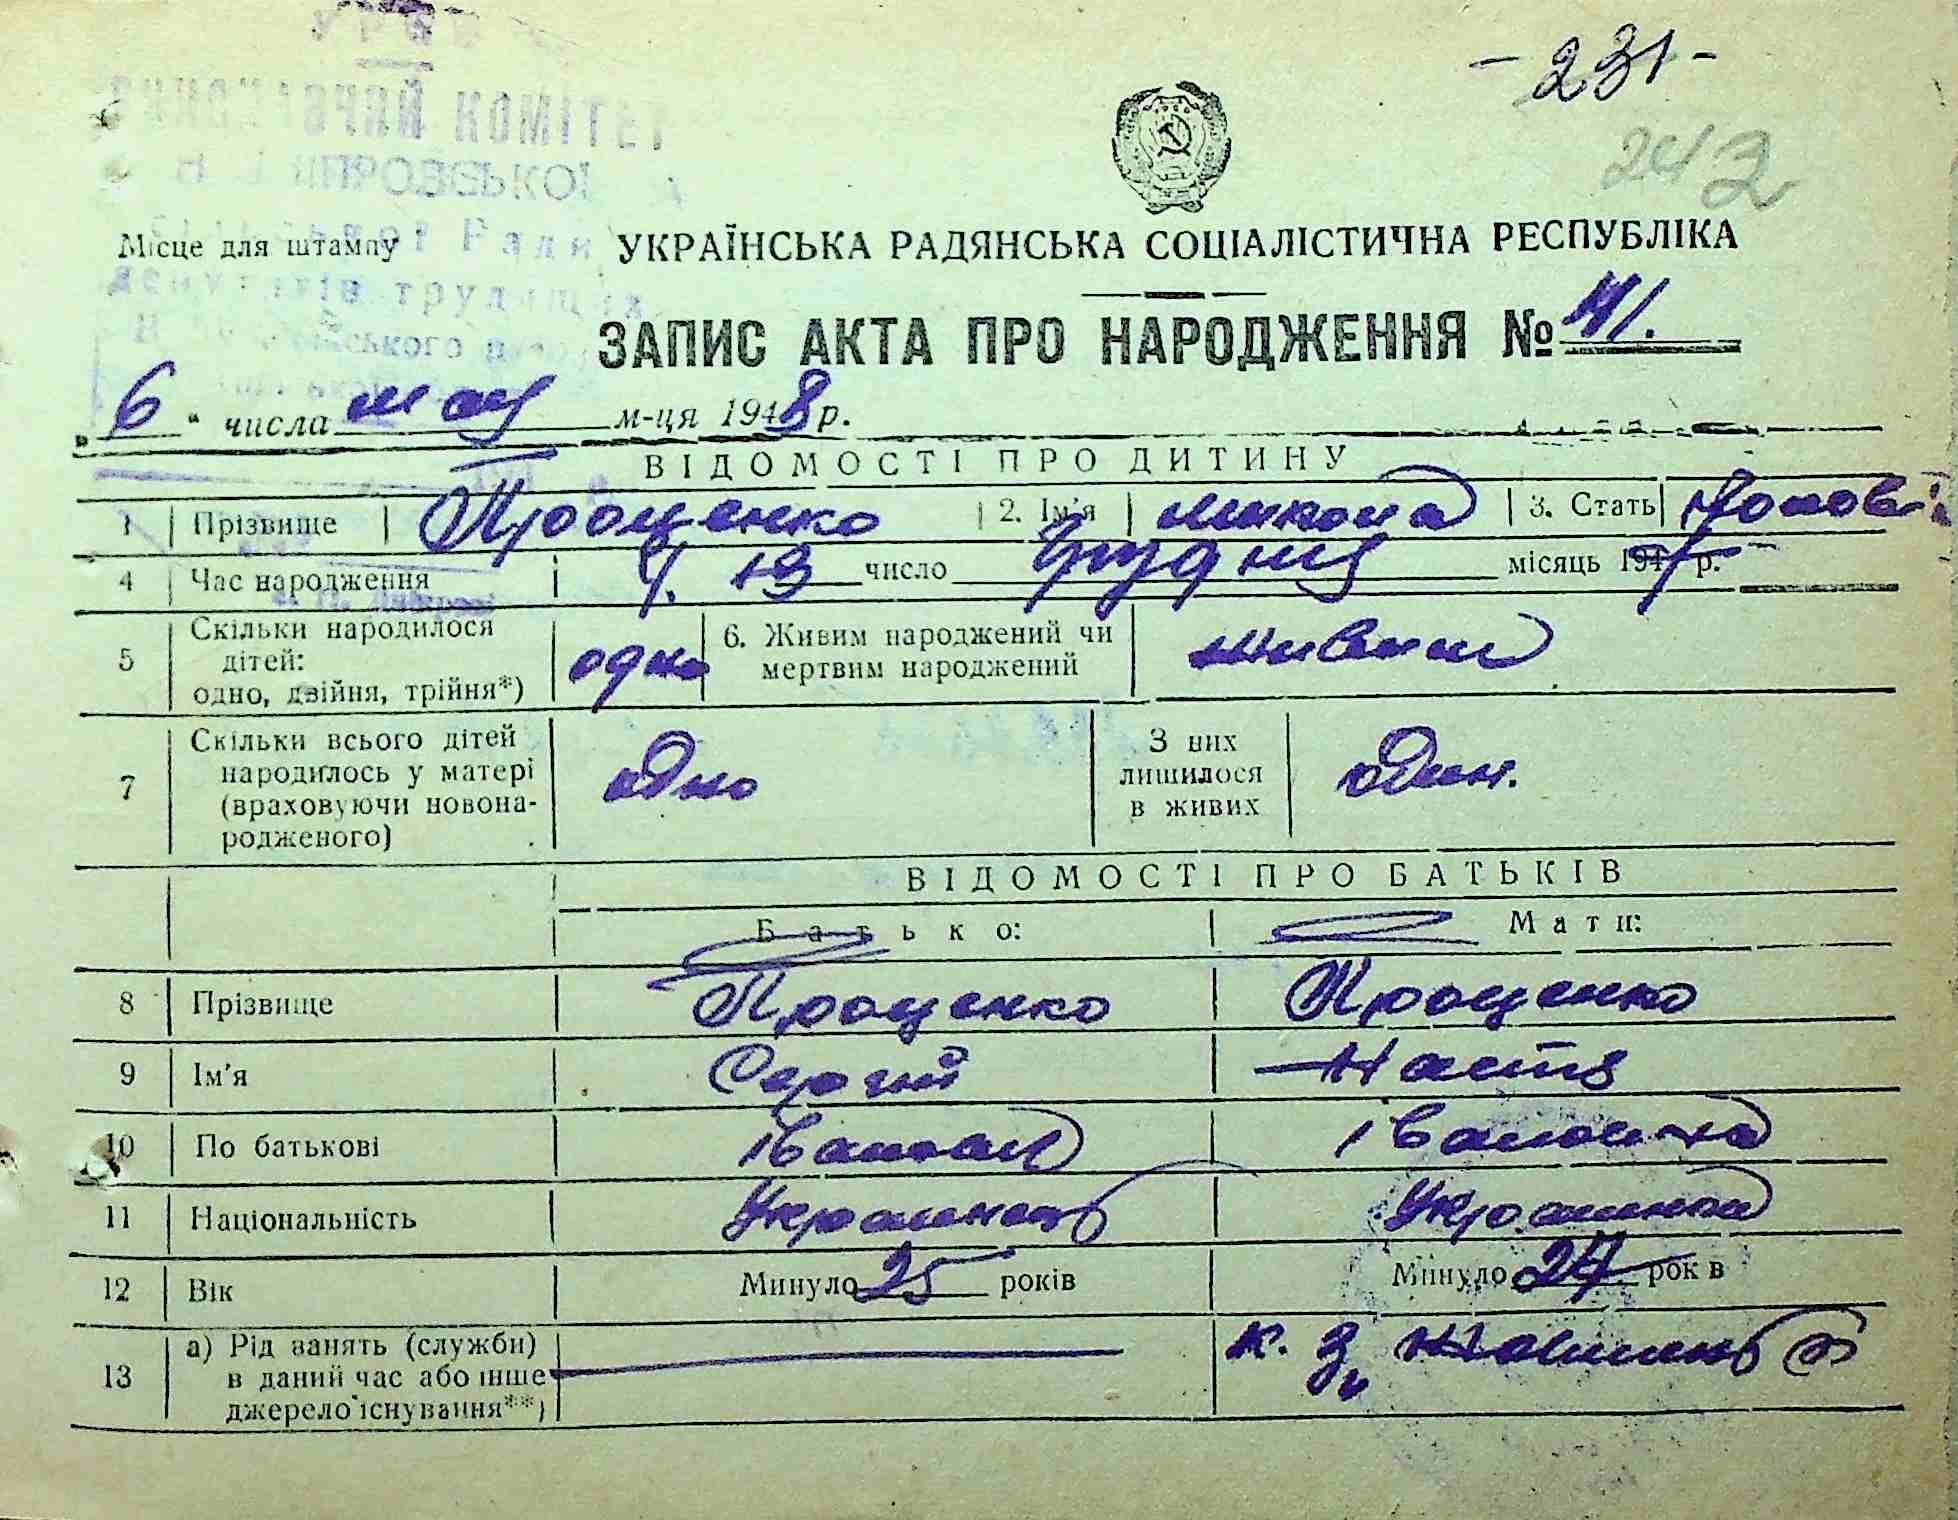 - 231 -
243
УРСР
ВИКОНАВЧИЙ КОМІТЕТ
Місце для штампу
УКРАЇНСЬКА РАДЯНСЬКА СОЦІАЛІСТИЧНА РЕСПУБЛІКА
ЗАПИС АКТА ПРО НАРОДЖЕННЯ № 41.
„ 6 “ числа мая м-ця 1948 р.
ВІДОМОСТІ ПРО ДИТИНУ
1 Прізвище Проценко 2. Ім'я Микола 3. Стать
4 Час народження 13 число Грудня місяць 1947 р.
5 Скільки народилося дітей: одно, двійня, трійня*) одно 6. Живим народжений чи мертвим народжений живим
7 Скільки всього дітей народилось у матері (враховуючи новонародженого) одно З них лишилося в живих один.
ВІДОМОСТІ ПРО БАТЬКІВ
Батько: Мати:
8 Прізвище Проценко Проценко
9 Ім'я Сергій Настя
10 По батькові Іванович Івановна
11 Національність Украинець Украинка
12 Вік Минуло 25 років Минуло 27 років
13 а) Рід занять (служби) в даний час або інше джерело існування**) к.